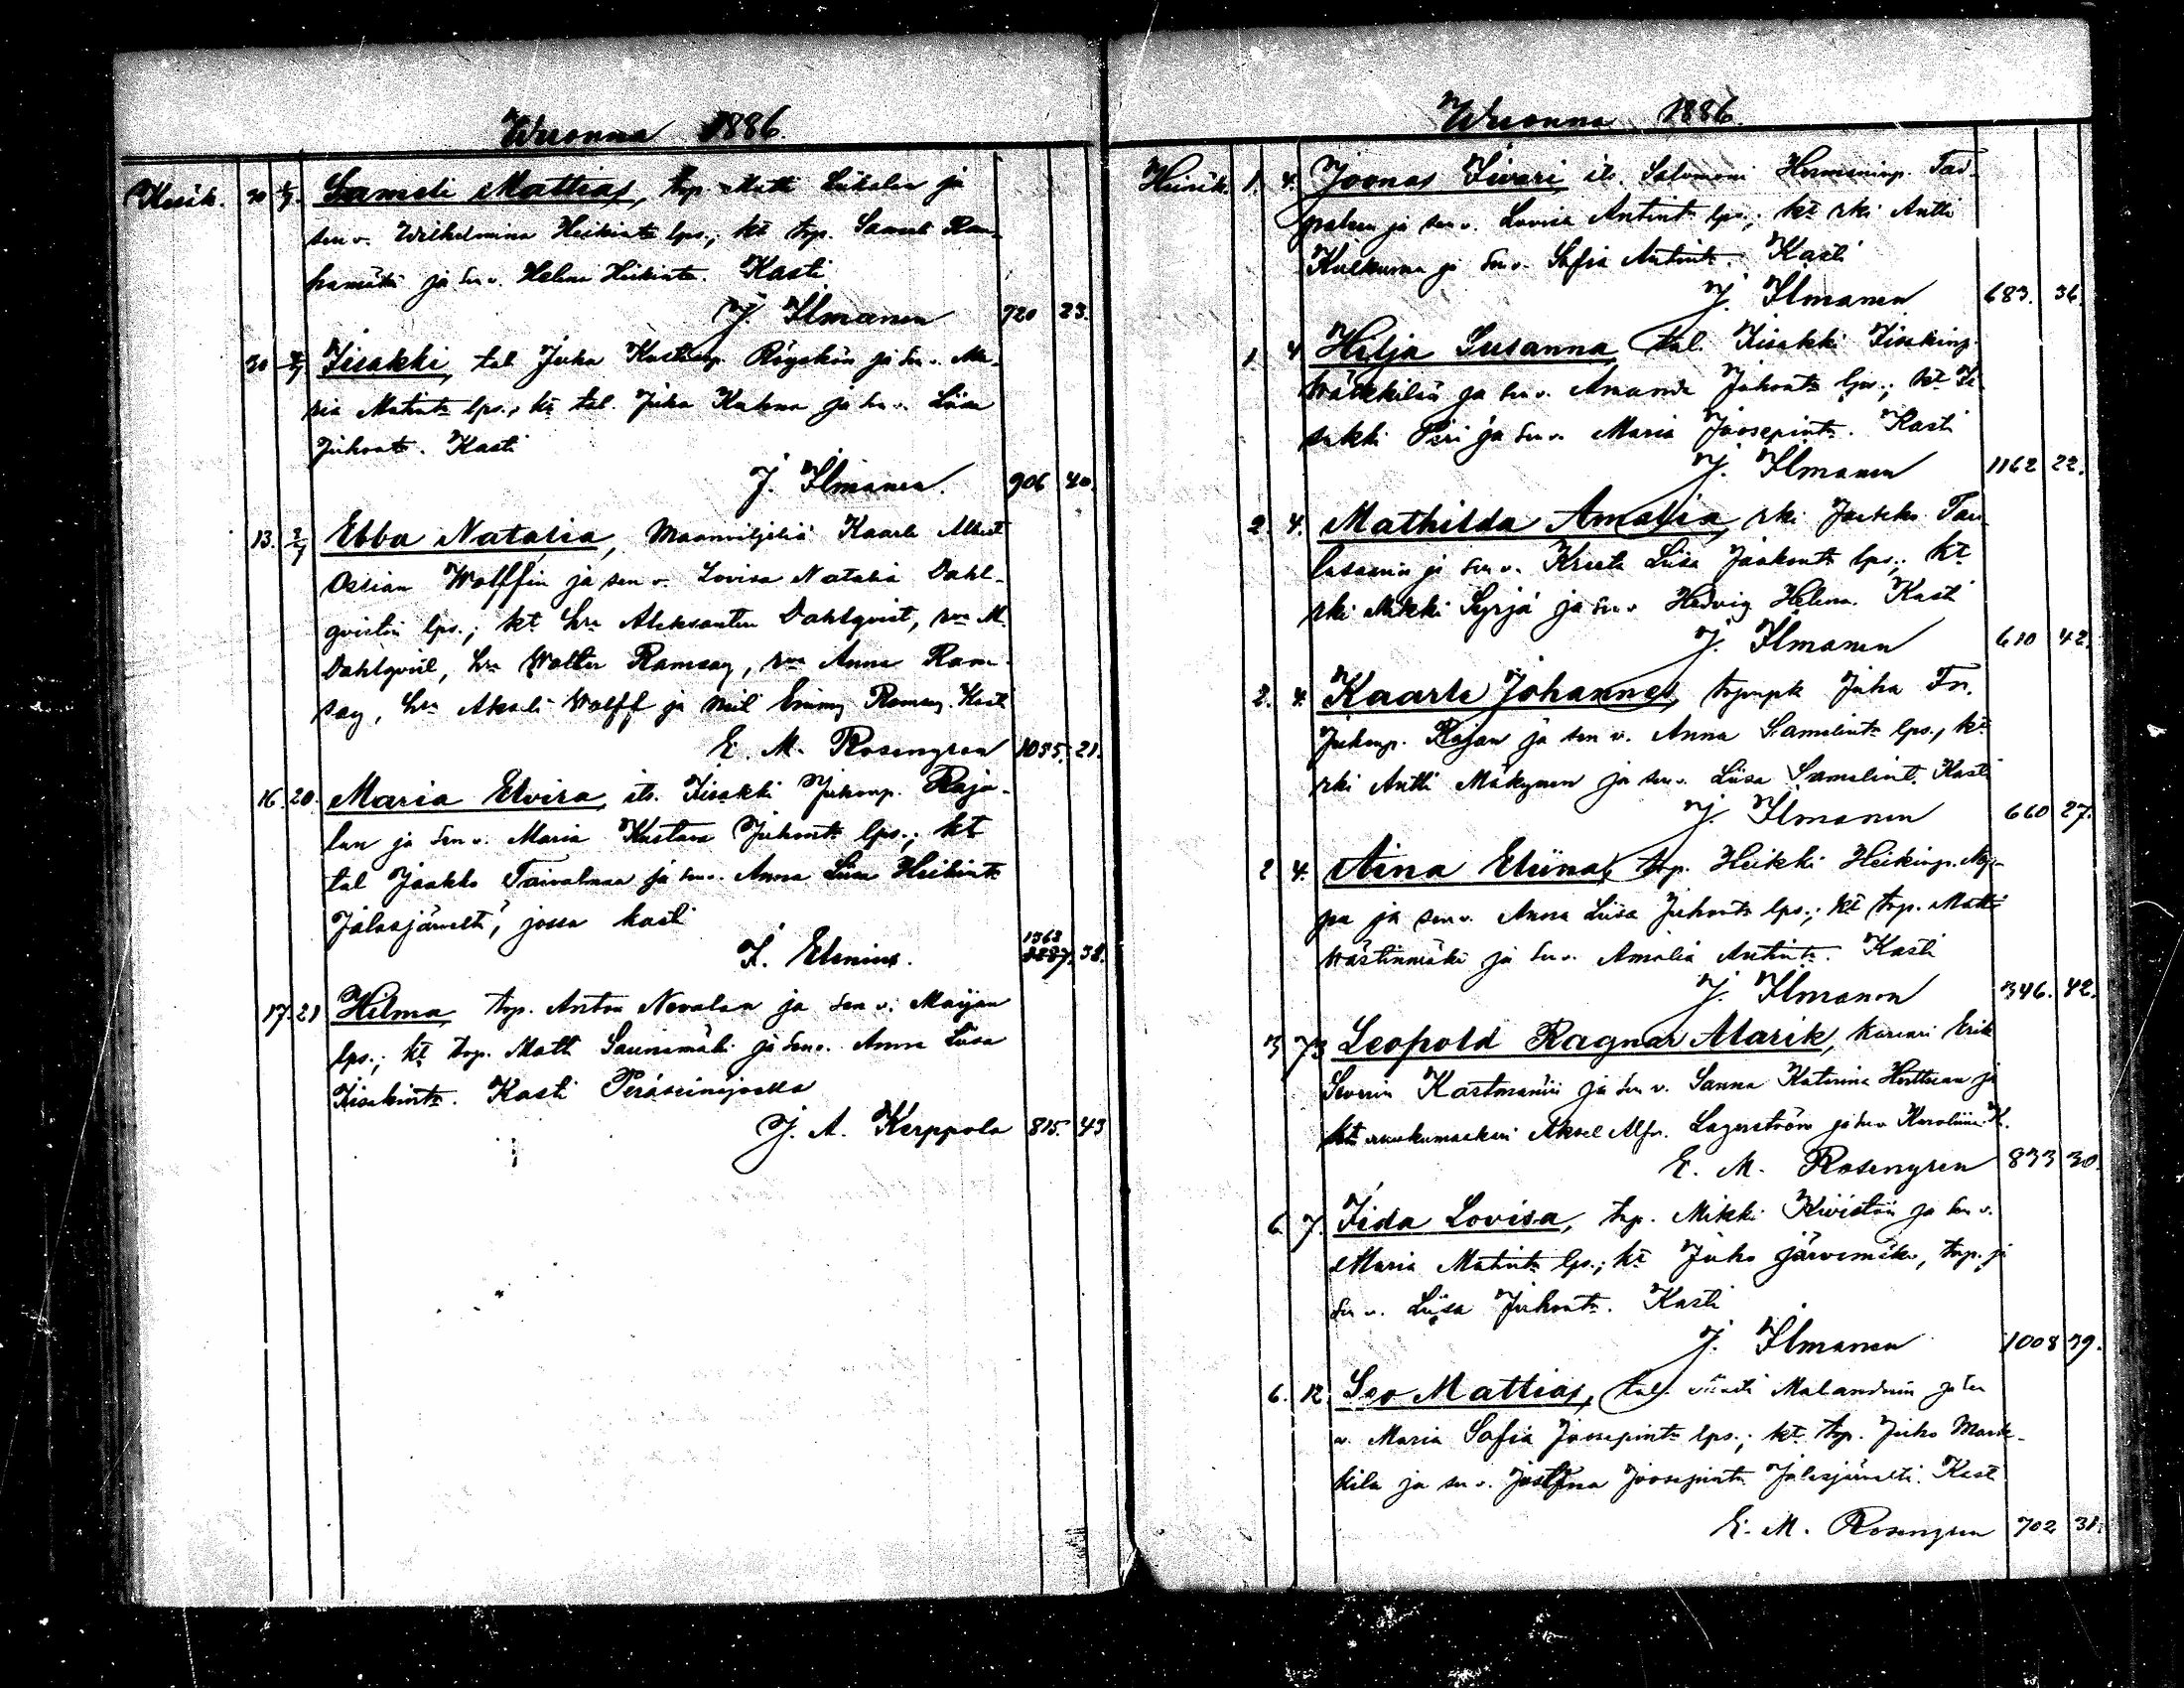 Wuonna 1886.
Kesäk. 30 4/7. Sameli Mattias, trp. Matti Liikalan ja
sen v. Wilhelmina Heikint. lps.; kt trp. Sameli Ran-
hamäki ja sen v. Helena Heikint. Kasti
J. Ilmanen 720 23.
30 4/7 Iisakki, tal Juha Kustanp. Röyskön ja sen v. Ma-
ria Matint. lps.; kt tal. Juha ja sen v. Liisa
Juhont. Kasti
J. Ilmanen. 906 40.
13. 2/7 Ebba Natalia, Maanviljeliä Kaarle Albert
Ossian Wolffin ja sen v. Lovisa Natalia Dahl-
qvistin lps.; kt hra Aleksanteri Dahlqvist, rva M.
Dahlqvist, hra Walter Ramsay, rva Anna Ram-
say, hra Akseli Wolff ja neiti Emmy Ramsay. Kasti
E. M. Rosengren 1085. 21.
16. 20. Maria Elvira, its. Iisakki Juhonp. Raja-
lan ja sen v. Maria Kustava Juhont. lps.; kt
tal Jaakko Taivalmaa ja sen v. Anna Liisa Heikint.
Jalasjärvelti, jossa kasti
K. Elenius. 1363 38.
17. 21 Hilma, trp. Anton Nevalan ja sen v. Maijan
lps.; kt trp. Matti Saunamäki ja sen v. Anna Liisa
Iisakint. Kasti Peräseinäjoella
J. A. Kerppola 815. 43
Wuonna 1886.
Heinäk. 1. 4. Joonas Iivari, its. Salomoni Hermaninp. Tai-
palen ja sen v. Lovisa Antint. lps.; kt rki Antti
ja sen v. Sofia Antint. Kasti
J. Ilmanen 683. 36.
1. 4 Hilja Susanna, tal. Iisakki Iisakinp.
Wäkkilän ja sen v. Amanda Juhont. lps.; kt Ii-
sakki ja sen v. Maria Joosepint. Kasti
J. Ilmanen 1162 22.
2. 4. Mathilda Amalia, rki Jaakko Tau-
lasaaren ja sen v. Kreeta Liisa Jaakont. lps.; kt
rki Mikki Syrjä ja sen v Hedvig Helena. Kasti
J. Ilmanen 610 42.
2. 4. Kaarle Johannes, Juha Fr.
Juhonp. Rajan ja sen v. Anna Samelint. lps., kt
rki Antti Mäkynen ja sen v. Liisa Samelint. Kasti
J. Ilmanen 660 27.
2 4. Aina Eliina, trp. Heikki Heikinp.
ja sen v. Anna Liisa Juhont. lps.; kt trp. Matti
Wästinmäki ja sen v. Amalia Antint. Kasti
J. Ilmanen 346. 42.
3 73 Leopold Ragnar Alarik, karvari Erik
Severin Kastmanin ja sen v. Sanna Katarina Herttuan ja
kt Aksel Alfr. Lagerström ja sen v Karoliina K.
E. M. Rosengren 833 30.
6. 7. Iida Lovisa, trp. Mikki Kivistön ja sen v.
Maria Matint. lps.; kt Juho Järvimäki, trp. ja
sen v. Liisa Juhont. Kasti
J. Ilmanen 1008 39.
6. 12. Leo Mattias, tal. Malandrin ja sen
v. Maria Sofia Joosepint. lps.; kt. trp. Juho Mark-
kila ja sen v. Josefina Joosepint. Jalasjärvelti. Kasti
E. M. Rosengren 702 31.